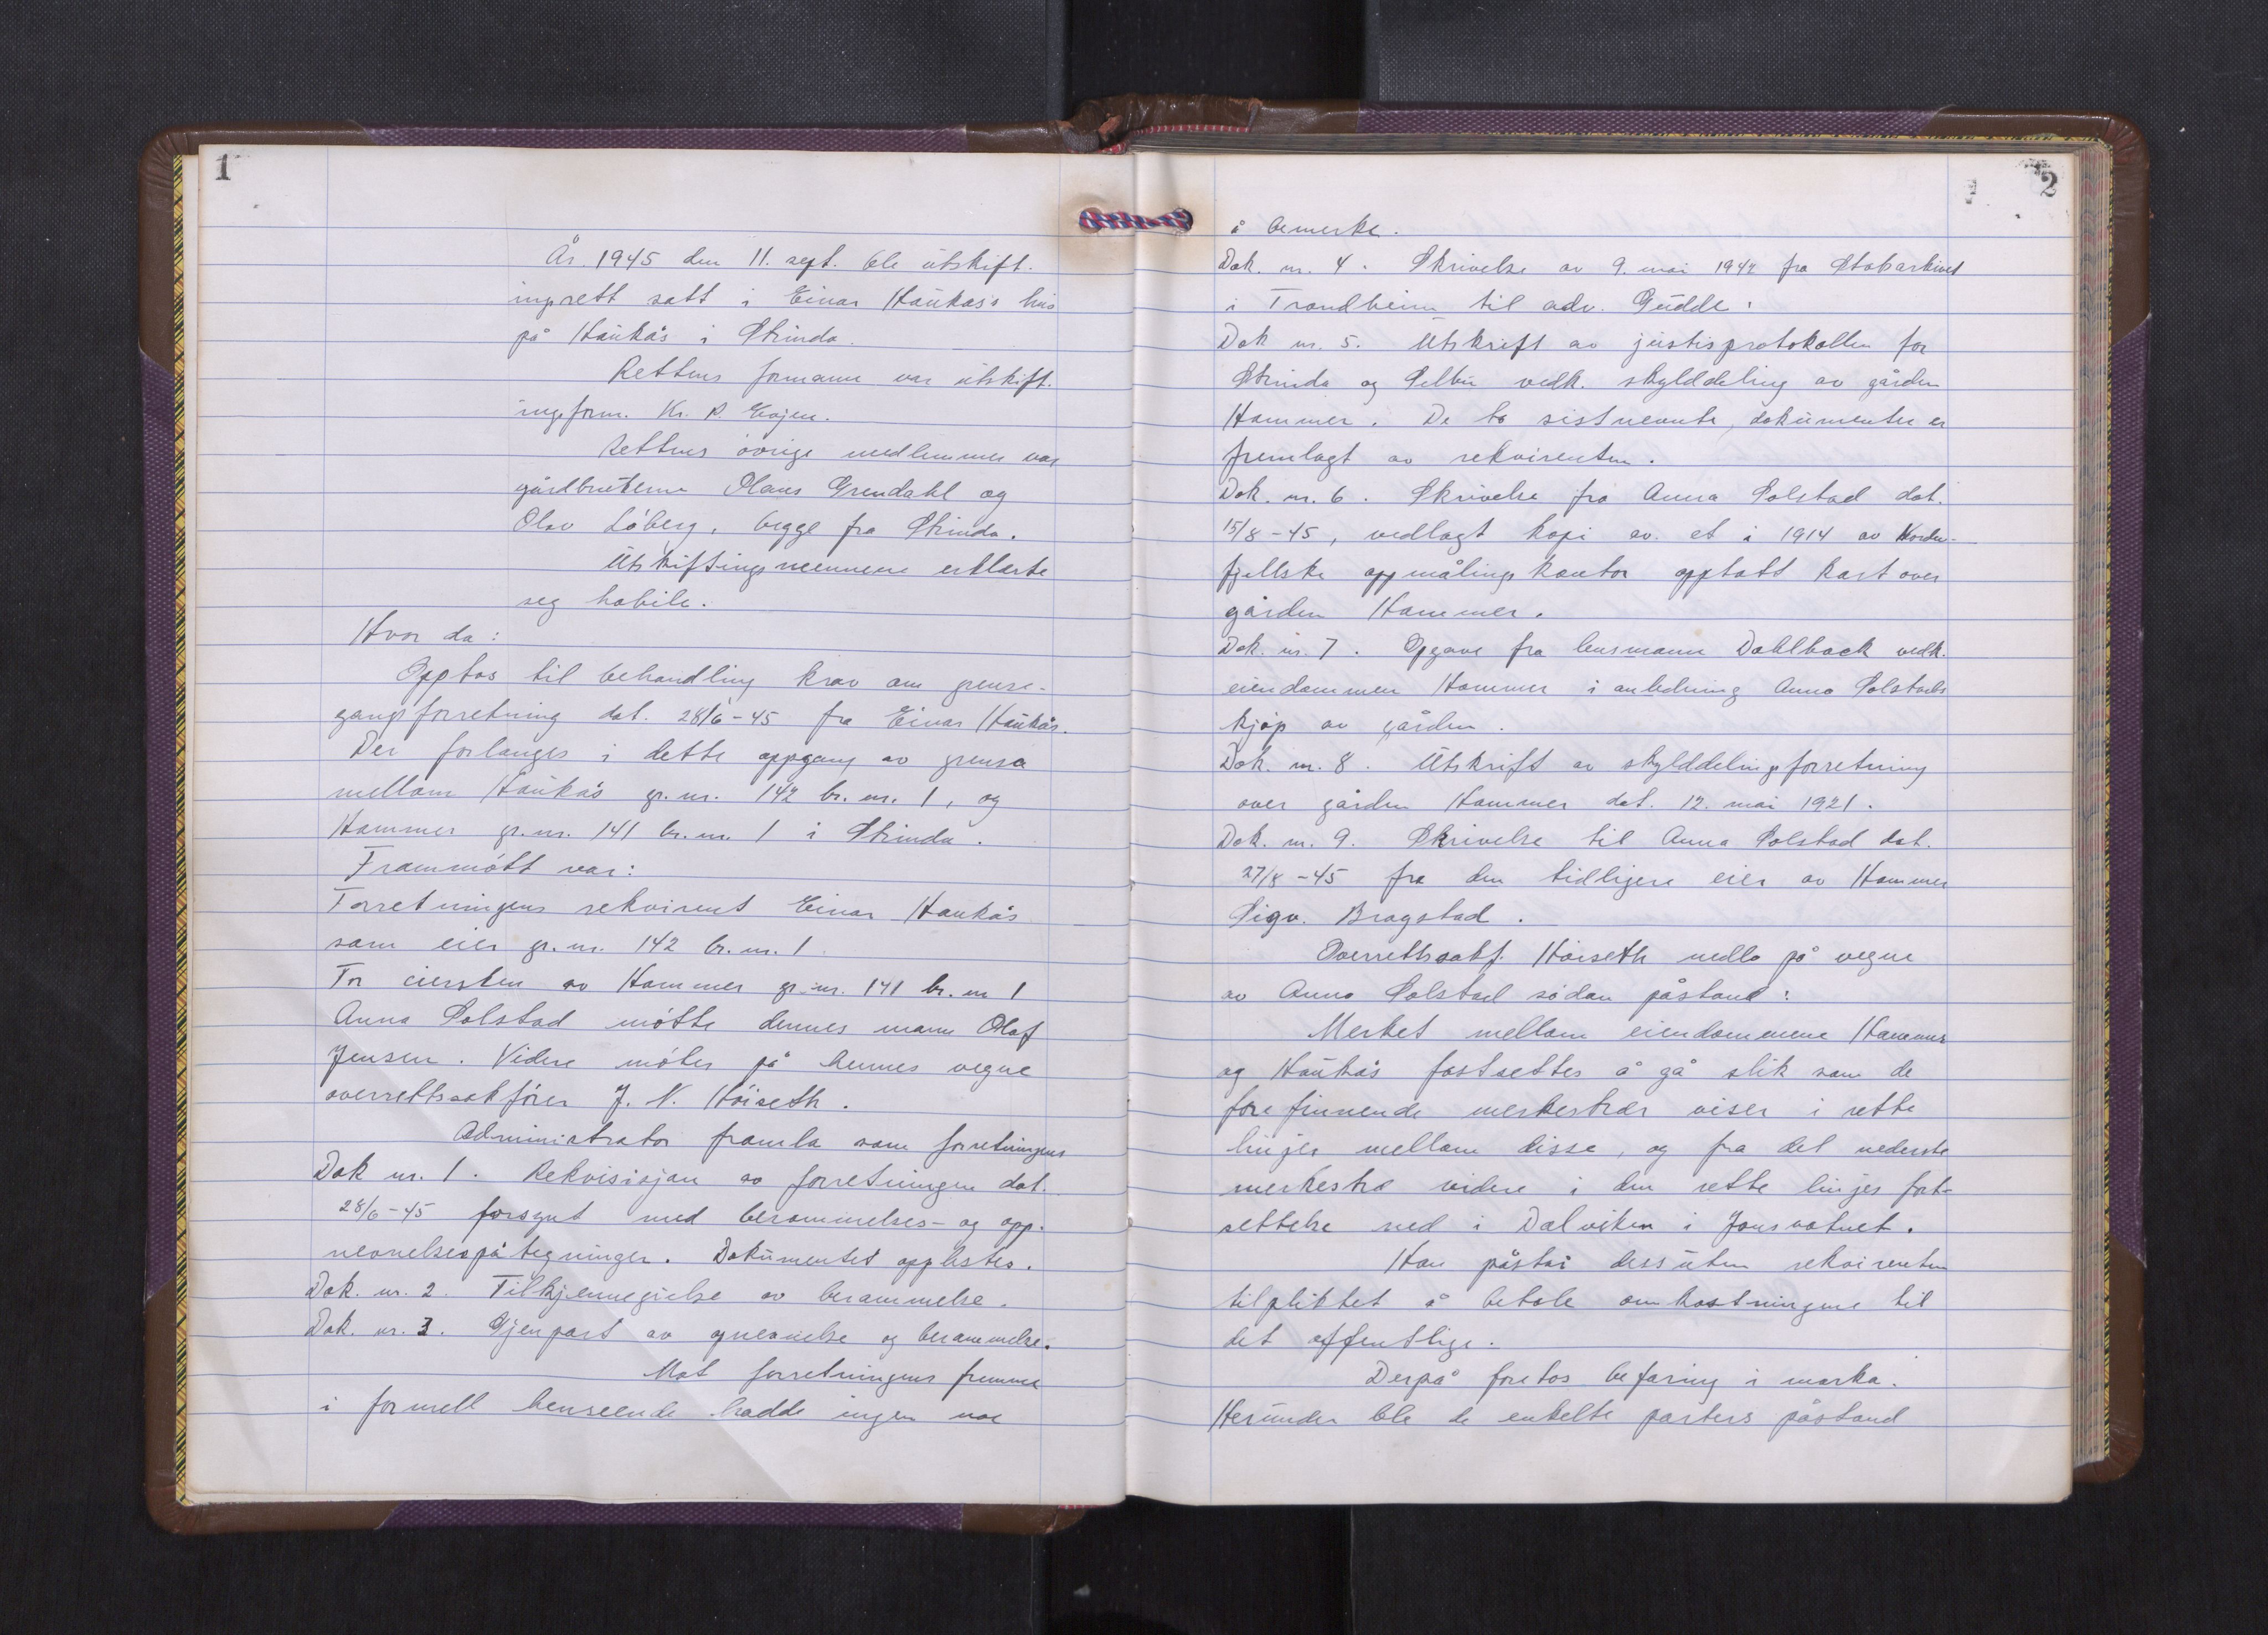 1
År 1945 den 11. sept. ble utskift-
ingsrett satt i Einar Haukås's hus
på Haukås i Strinda.
Rettens formann var utskift-
ingsform. Kr. R. Eojen.
Rettens övrige medlemmer var
gårdbrukerne Olaus Grendahl og
Olav Löberg, begge fra Strinda.
Utskiftingsmennene erklærte
seg habile.
Hvor da:
Opptas til behandling krav om grense-
gangsforretning dat. 28/6-45 fra Einar Haukås.
Der forlanges i dette oppgang av grensa
mellom Haukås gr. nr. 142 br. nr. 1, og
Hammer gr. nr. 141 br. nr. 1 i Strinda.
Frammött var:
Forretningens rekvirent Einar Haukås
som eier gr. nr. 142 br. nr. 1.
For eiersken av Hammer gr. nr. 141 br. nr 1
Anna Solstad mötte dennes mann Olaf
Jensen. Videre möter på hennes vegne
overrettssakförer J. N. Höiseth.
Administrator framla som forretningens
Dok nr. 1. Rekvisisjon av forretningen dat.
28/6-45 forsynt med berammelses- og opp-
nevnelsespåtegninger. Dokumentet opplestes.
Dok. nr. 2. Tilkjennegivelse av berammelse.
Dok. nr. 3. Gjenpart av opnevnelse og berammelse.
Mot forretningens fremme
i formell henseende hadde ingen noe
2
å bemerke.
Dok. nr. 4. Skrivelse av 9. mai 1942 fra Statsarkivet
i Trondheim til adv. Gudde.
Dok nr. 5. Utskrift av justisprotokollen for
Strinda og Selbu vedk. skylddeling av gården
Hammer. De to sistnevnte dokumenter er
fremlagt av rekvirenten.
Dok. nr. 6. Skrivelse fra Anna Solstad dat.
15/8-45, vedlagt kopi av et i 1914 av Norden-
fjellske oppmålingskontor opptatt kart over
gården Hammer.
Dok. nr. 7. Opgave fra lensmann Dahlback vedk.
eiendommen Hammer i anledning Anna Solstads
kjöp av gården.
Dok. nr. 8. Utskrift av skylddelingsforretning
over gården Hammer dat. 12. mai 1921.
Dok. nr. 9. Skrivelse til Anna Solstad dat.
27/8-45 fra den tidligere eier av Hammer
Sigv. Bragstad.
Overrettssakf. Höiseth nedla på vegne
av Anna Solstad sådan påstand:
Merket mellom eiendommene Hammer
og Haukås fastsettes å gå slik som de
forefinnende merkestrær viser i rette
linjer mellom disse, og fra det nederste
merkestre videre i den rette linjes fort-
settelse ned i Dalviken i Jonsvatnet.
Han påstår dessuten rekvirenten
tilpliktet å betale omkostningene til
det offentlige.
Derpå foretos befaring i marka.
Herunder ble de enkelte parters påstand